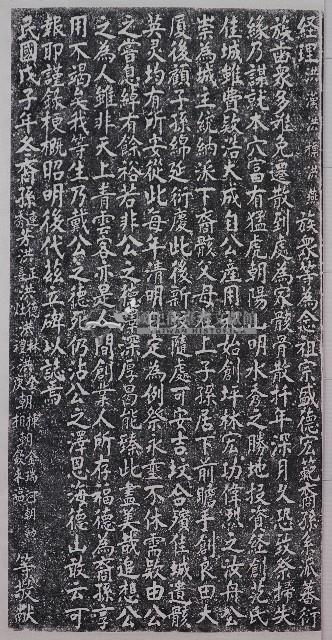 經理洪漢洪標洪燕族眾等為念祖宗盛德宏範裔孫系派蕃衍
族齒眾多难免遷散到處為家骸骨散扦年深月久恐致祭掃失
緣乃謀就本穴富有猛虎朝陽明水秀之勝地投資經創范氏
佳城雖費設浩大成自公產用始創坪林宏功偉烈之汝舟公
崇為城主統納派下裔骸父母上子孫居下前瞻手創良田大
厦後顧子孫綿延衍慶此後新隨處可安吉坟合殯佳城遺骸
英灵均有所安從此每年清明定為例祭永垂不休需歀由公
之嘗息綽有餘裕若非公之德澤深厚曷能臻此盡美哉追想公
之為人雖非天上青雲客亦是人間創業人所存福德為裔孫享
用不竭矣我等生乃戴公之德死仍沾公之澤恩海德山敢云可
報耶謹錄梗概昭明後代玆立碑以誌焉
民國戊子年冬裔孫
等敬献